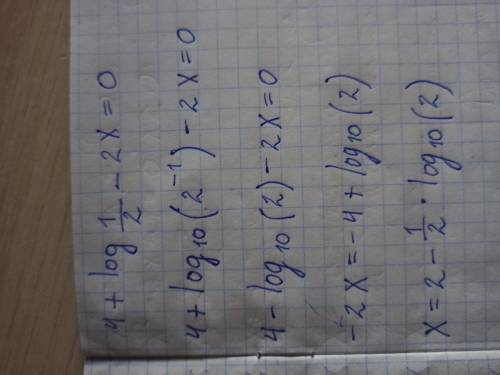 4 + log 1/2 - 2x = 0
4 + log₁₀(2⁻¹) - 2x = 0
4 - log₁₀(2) - 2x = 0
-2x = -4 + log₁₀(2)
x = 2 - 1/2 · log₁₀(2)